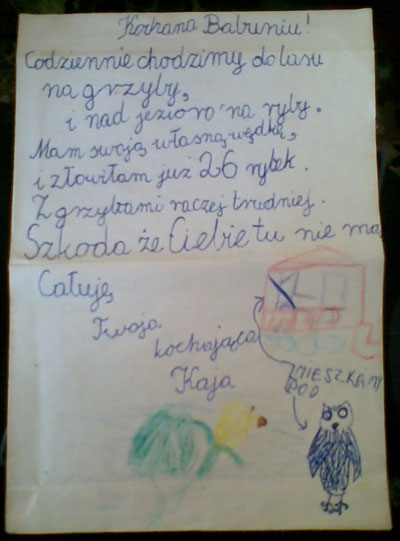 Kochana Babuniu!
Codziennie chodzimy do lasu
na grzyby,
i nad jezioro na ryby.
Mam swoją własną wędkę,
i złowiłam już 26 rybek.
Z grzybami raczej trudniej.
Szkoda że Ciebie tu nie ma
Całuję,
Twoja
kochająca
Kaja
MIESZKAMY
POD